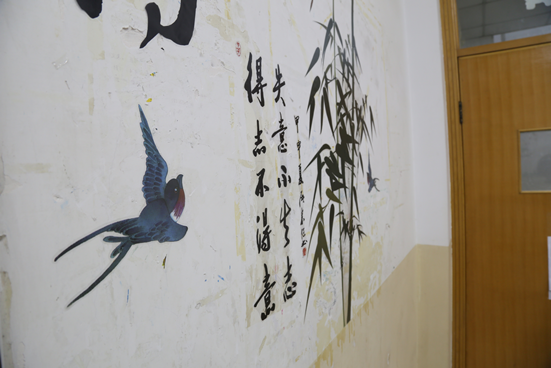 失意不失志
得志不得意